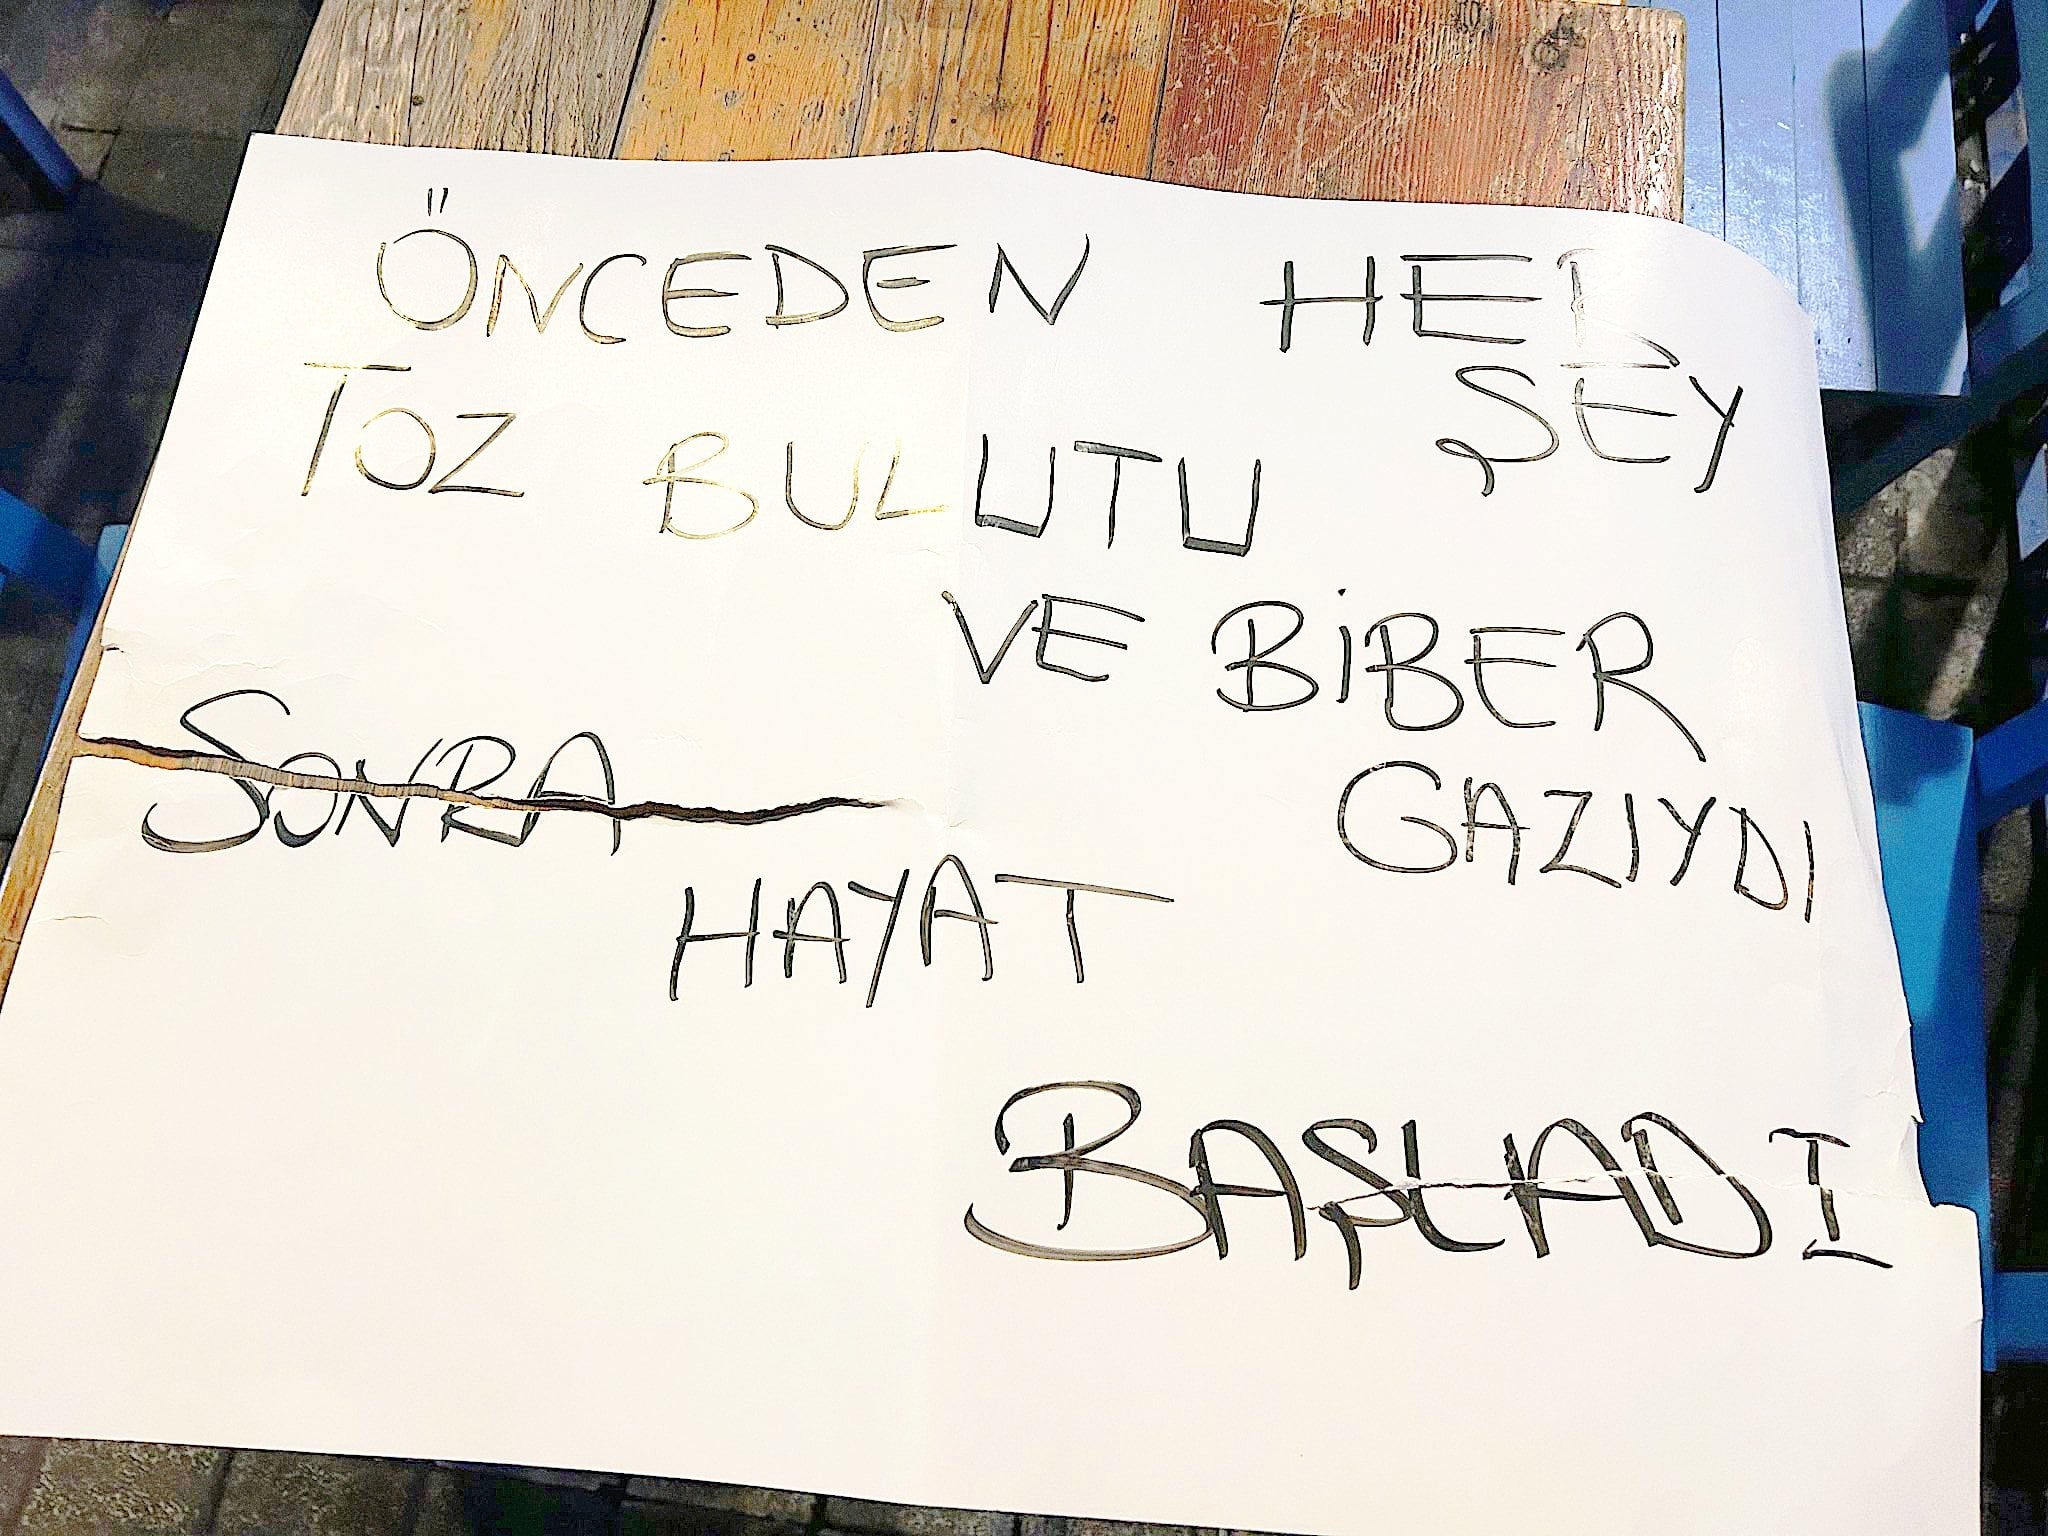 ÖNCEDEN HER
ŞEY
TOZ BULUTU
VE BİBER
GAZIYDI
SONRA
HAYAT
BAŞLADI